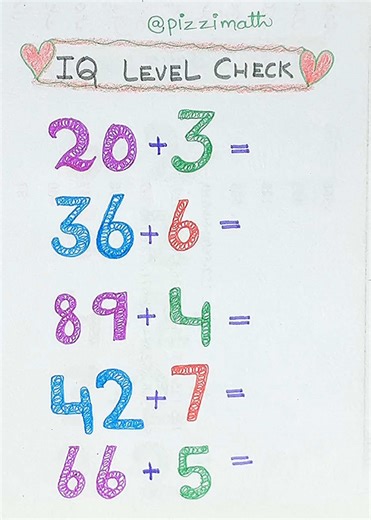 @pizzimath
IQ LEVEL CHECK
20 + 3 =
36 + 6 =
89 + 4 =
42 + 7 =
66 + 5 =